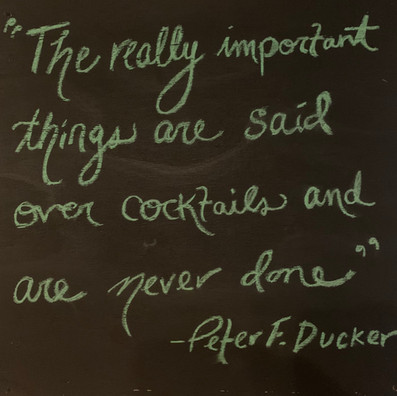 "The really important
things are said
over cocktails and
are never done"
-Peter F. Ducker